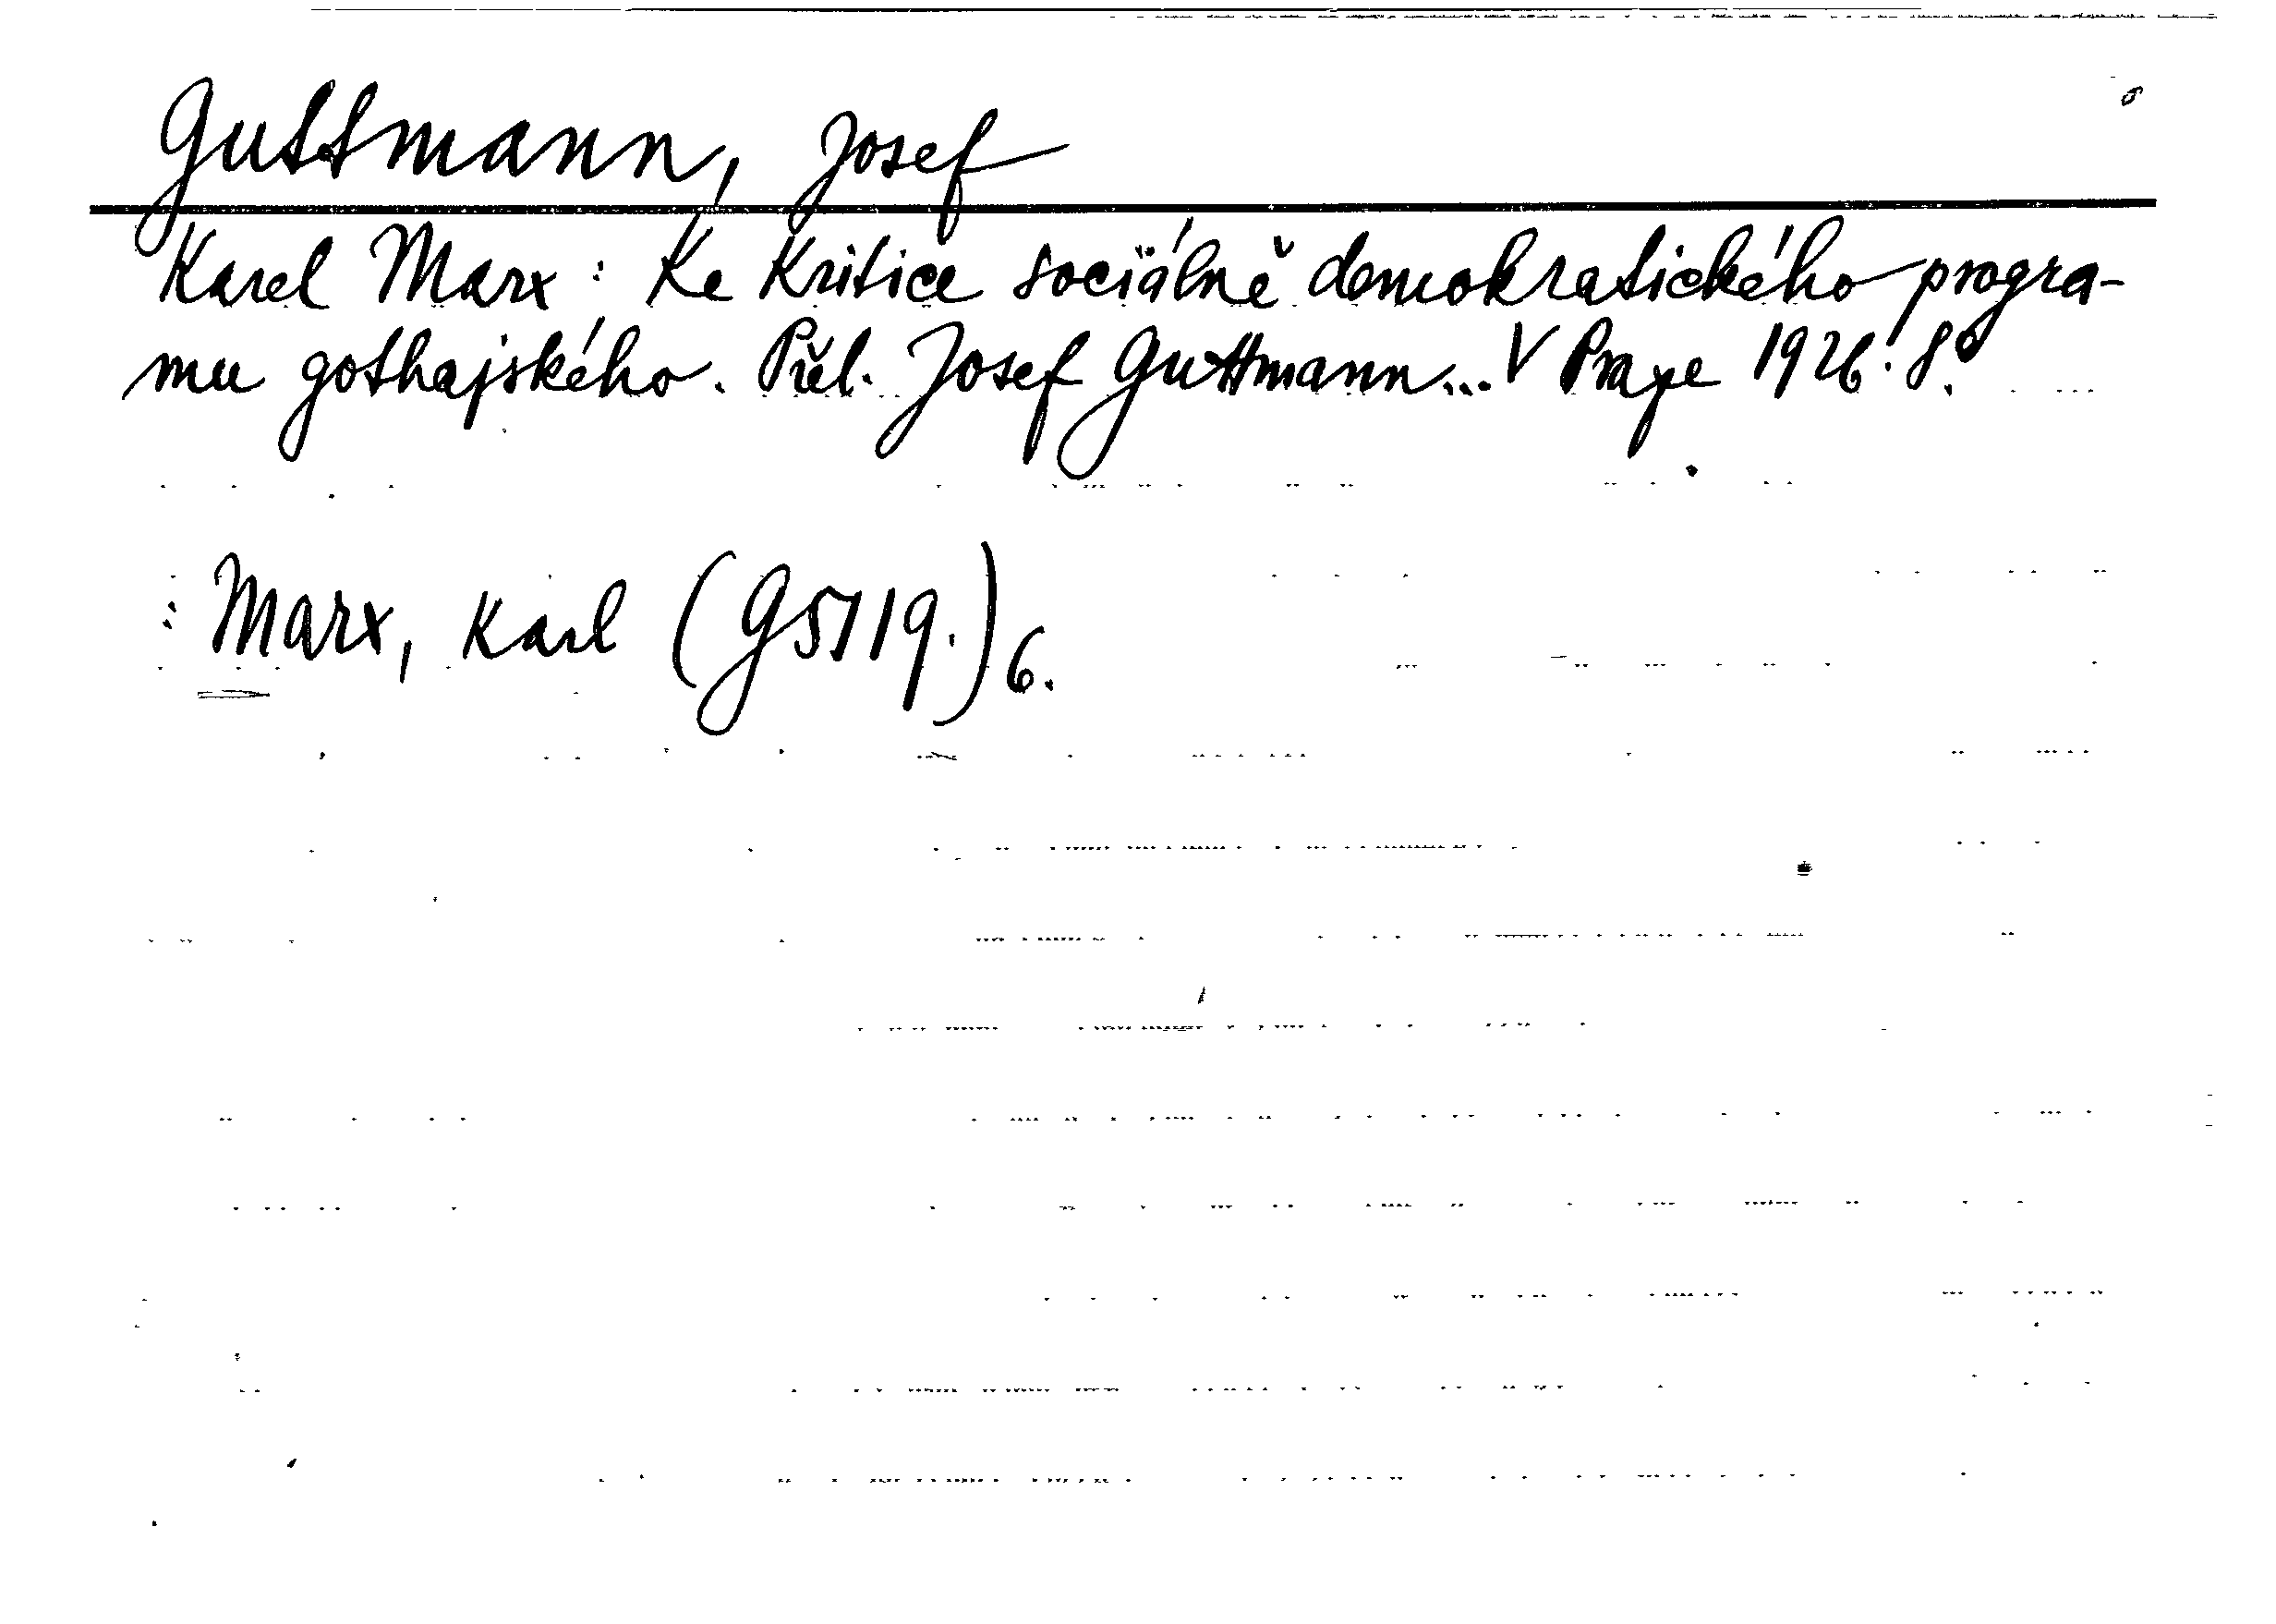 Guttmann, Josef
Karel Marx: Ke kritice sociálně demokratického progra-
mu gothajského. Přel. Josef Guttmann... V Praze 1926. 8°.
Marx, Karl (G5119.)6.